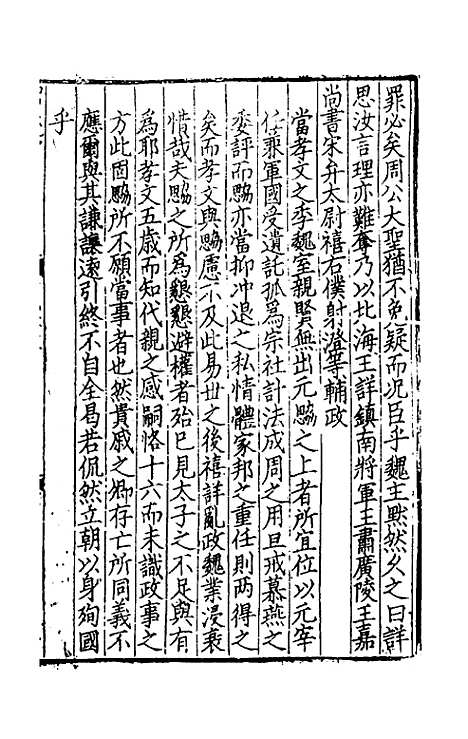 罪必矣周公大聖猶不免疑而况臣乎魏主黙然久之曰詳
思汝言理亦難奪乃以北海王詳鎮南將軍王肅廣陵王嘉
尚書宋弁太尉禧右僕射澄等輔政
當孝文之季魏室親賢無出元勰之上者所宜位以元宰
任兼軍國受遺託孤為宗社計法成周之用旦戒慕燕之
委評而勰亦當抑冲退之私情體家邦之重任則两得之
矣而孝文與勰慮不及此易世之後禧詳亂政魏業浸衰
惜哉夫勰之所為懇懇避權者殆巳見太子之不足與有
為耶孝文五歳而知代親之感嗣恪十六而未識政事之
方此固勰所不願當事者也然貴戚之卿存亡所同義不
應爾與其謙讓逺引終不自全曷若侃然立朝以身殉國
乎